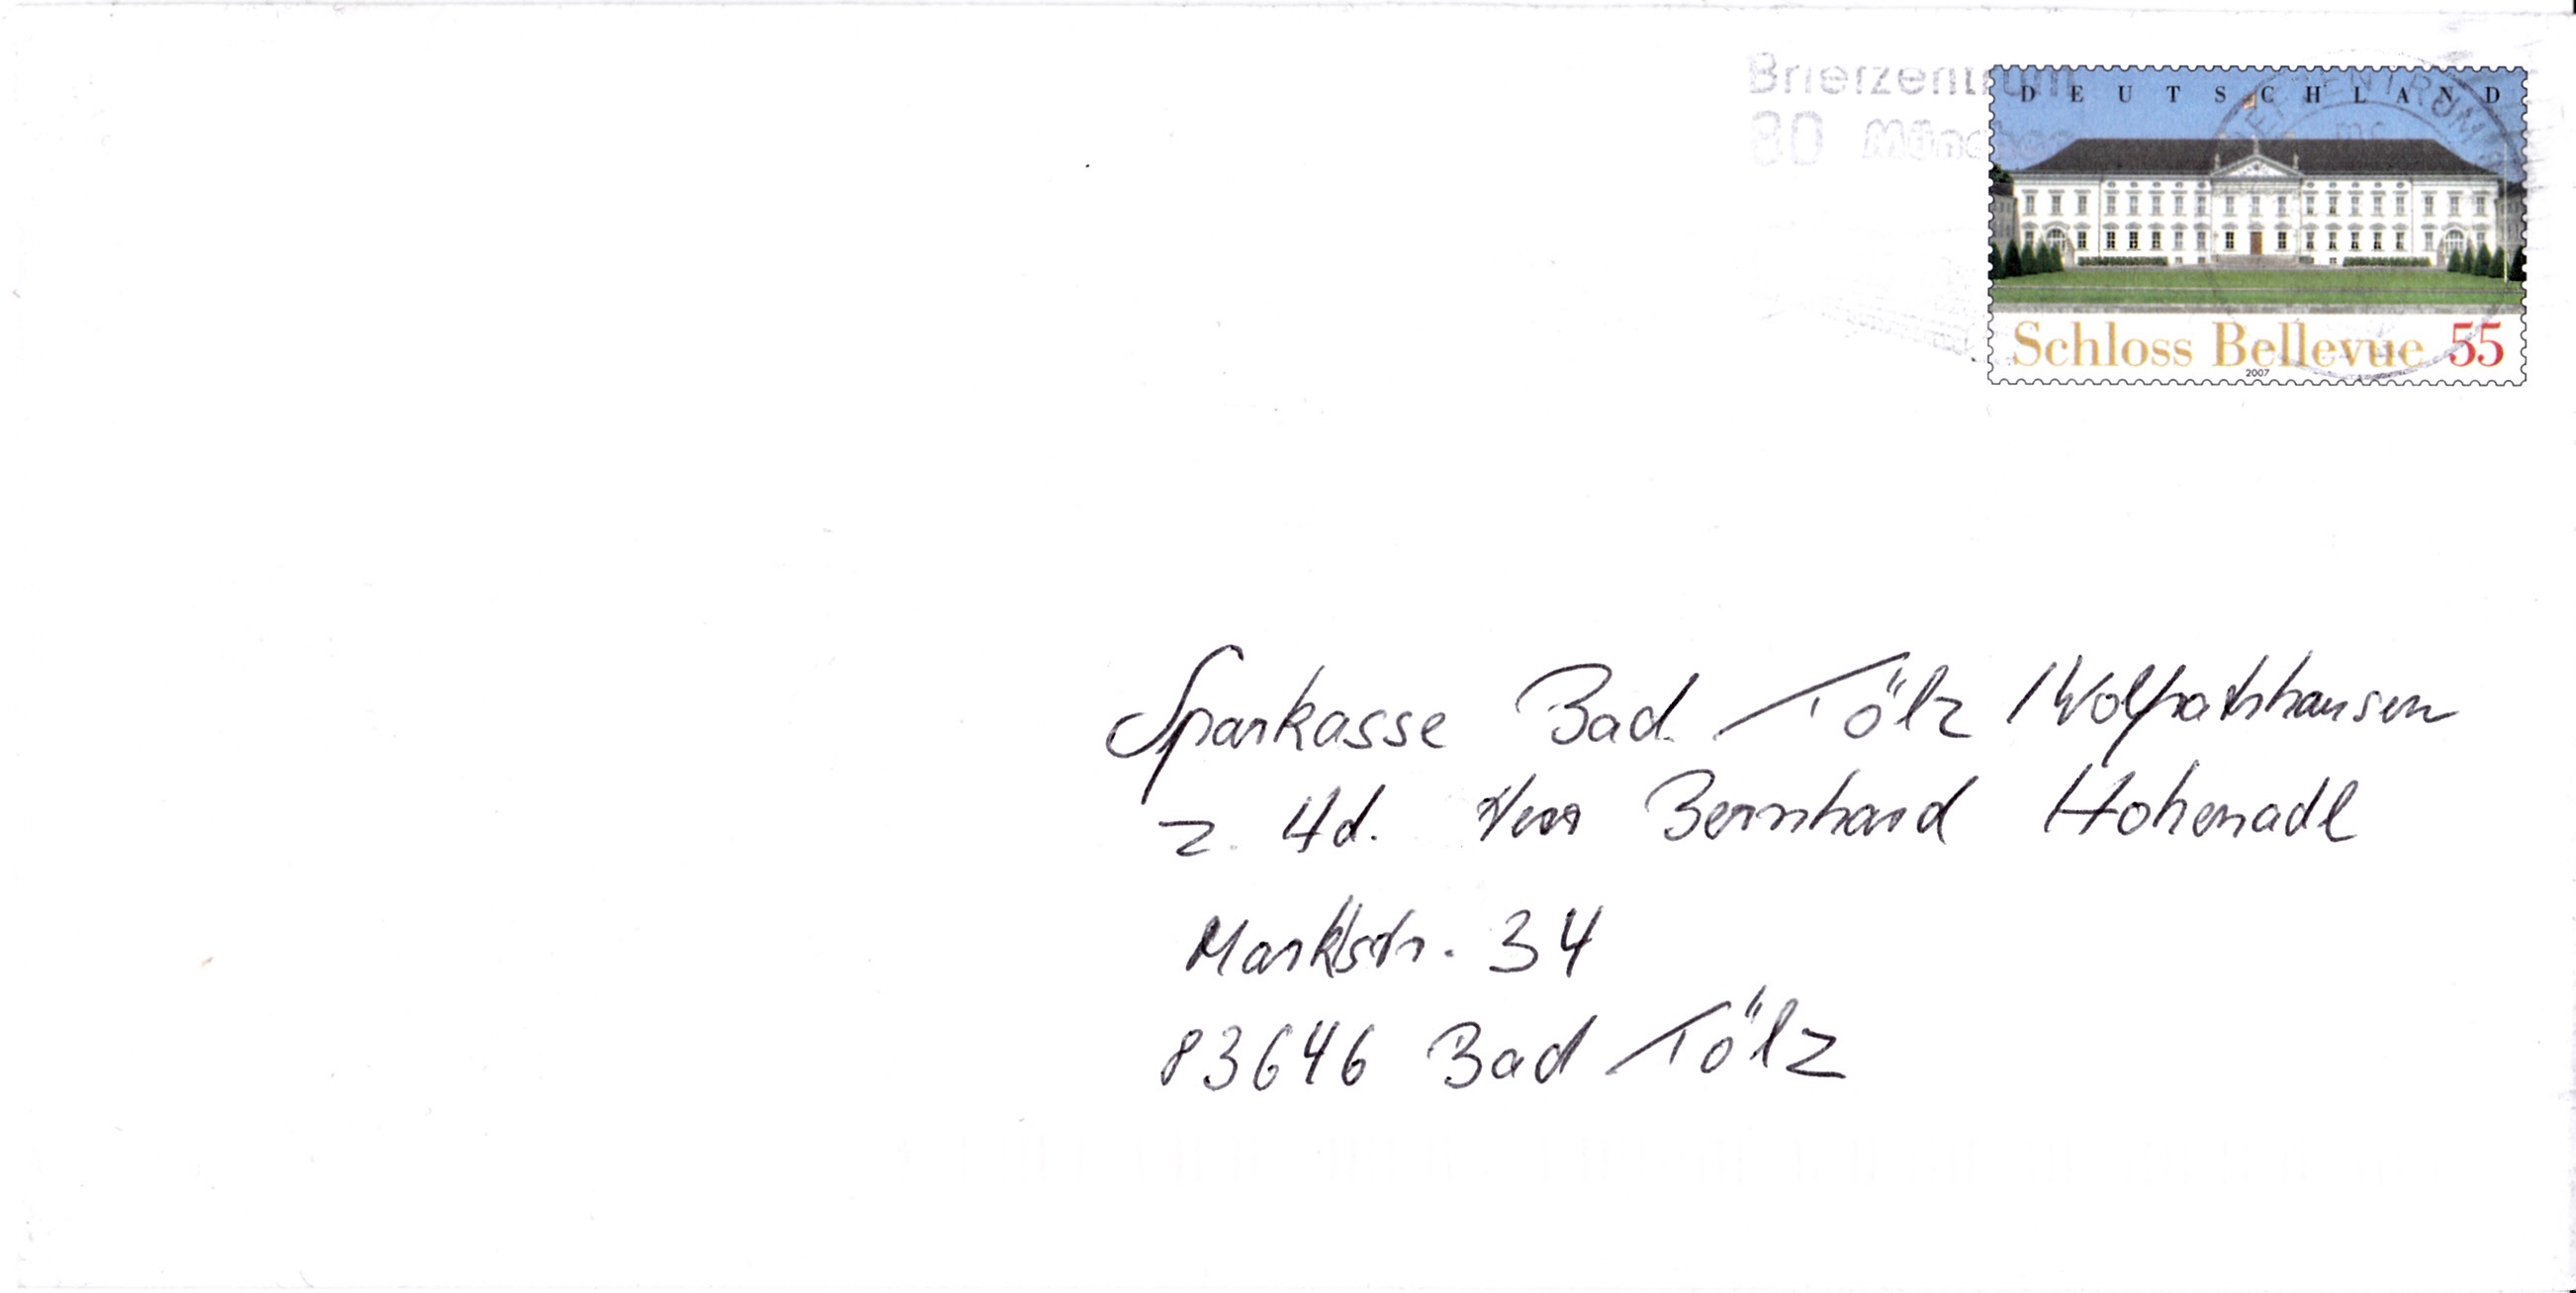 Briefzentrum
80 München
DEUTSCHLAND
Schloss Bellevue 55
2007
Sparkasse Bad Tölz /Wolfratshausen
z. Hd. Herr Bernhard Hohenadl
Marktstr. 34
83646 Bad Tölz